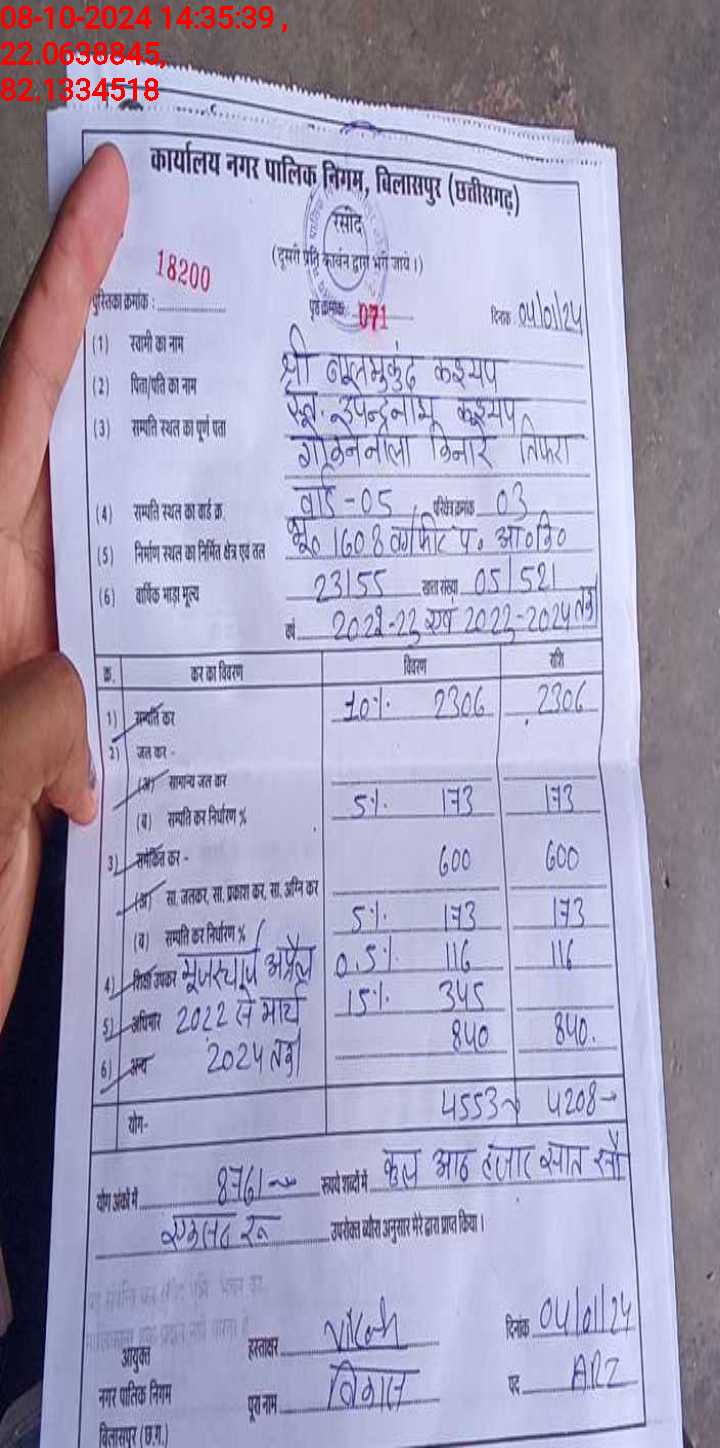 08-10-2024 14:35:39 ,
22.0638845,
82.1334518
कार्यालय नगर पालिक निगम, बिलासपुर (छत्तीसगढ़)
रसीद
(दूसरी प्रति कार्बन द्वारा भरी जाये।)
18200
पुस्तिका क्रमांक : पृष्ठ क्रमांक 071 दिनांक 04/01/24
(1) स्वामी का नाम श्री बालमुकुंद कश्यप
(2) पिता/पति का नाम कश्यप
(3) सम्पति स्थल का पूर्ण पता
किनारे तिफरा
(4) सम्पति स्थल का वार्ड क्र. वार्ड - 05 परिक्षेत्र क्रमांक 03
(5) निर्माण स्थल का निर्मित क्षेत्र एवं तल भू० 1608 वर्गफीट
(6) वार्षिक भाड़ा मूल्य 23155 खाता संख्या 05/521
वर्ष 2022-23 एवं 2023-2024 तक
क्र. कर का विवरण विवरण राशि
1) सम्पति कर 10% 2306 2306
2) जल कर -
(अ) सामान्य जल कर
(ब) सम्पति कर निर्धारण % 5% 173 173
3) समेकित कर - 600 600
(अ) सा. जलकर, सा. प्रकाश कर, सा. अग्नि कर
(ब) सम्पति कर निर्धारण % 5% 173 173
4) शिक्षा उपकर यूजरचार्ज अप्रैल 0.5% 116 116
5) अधिभार 2022 से मार्च 15% 345
6) अन्य 2024 तक 840 840.
योग- 4553 4208
योग अंकों में 8761 रूपये शब्दों में कुल आठ हजार सात सौ
एकसठ रू उपरोक्त ब्यौरा अनुसार मेरे द्वारा प्राप्त किया।
आयुक्त हस्ताक्षर दिनांक 04/01/24
नगर पालिक निगम पूरा नाम विकास पद
बिलासपुर (छ.ग.)